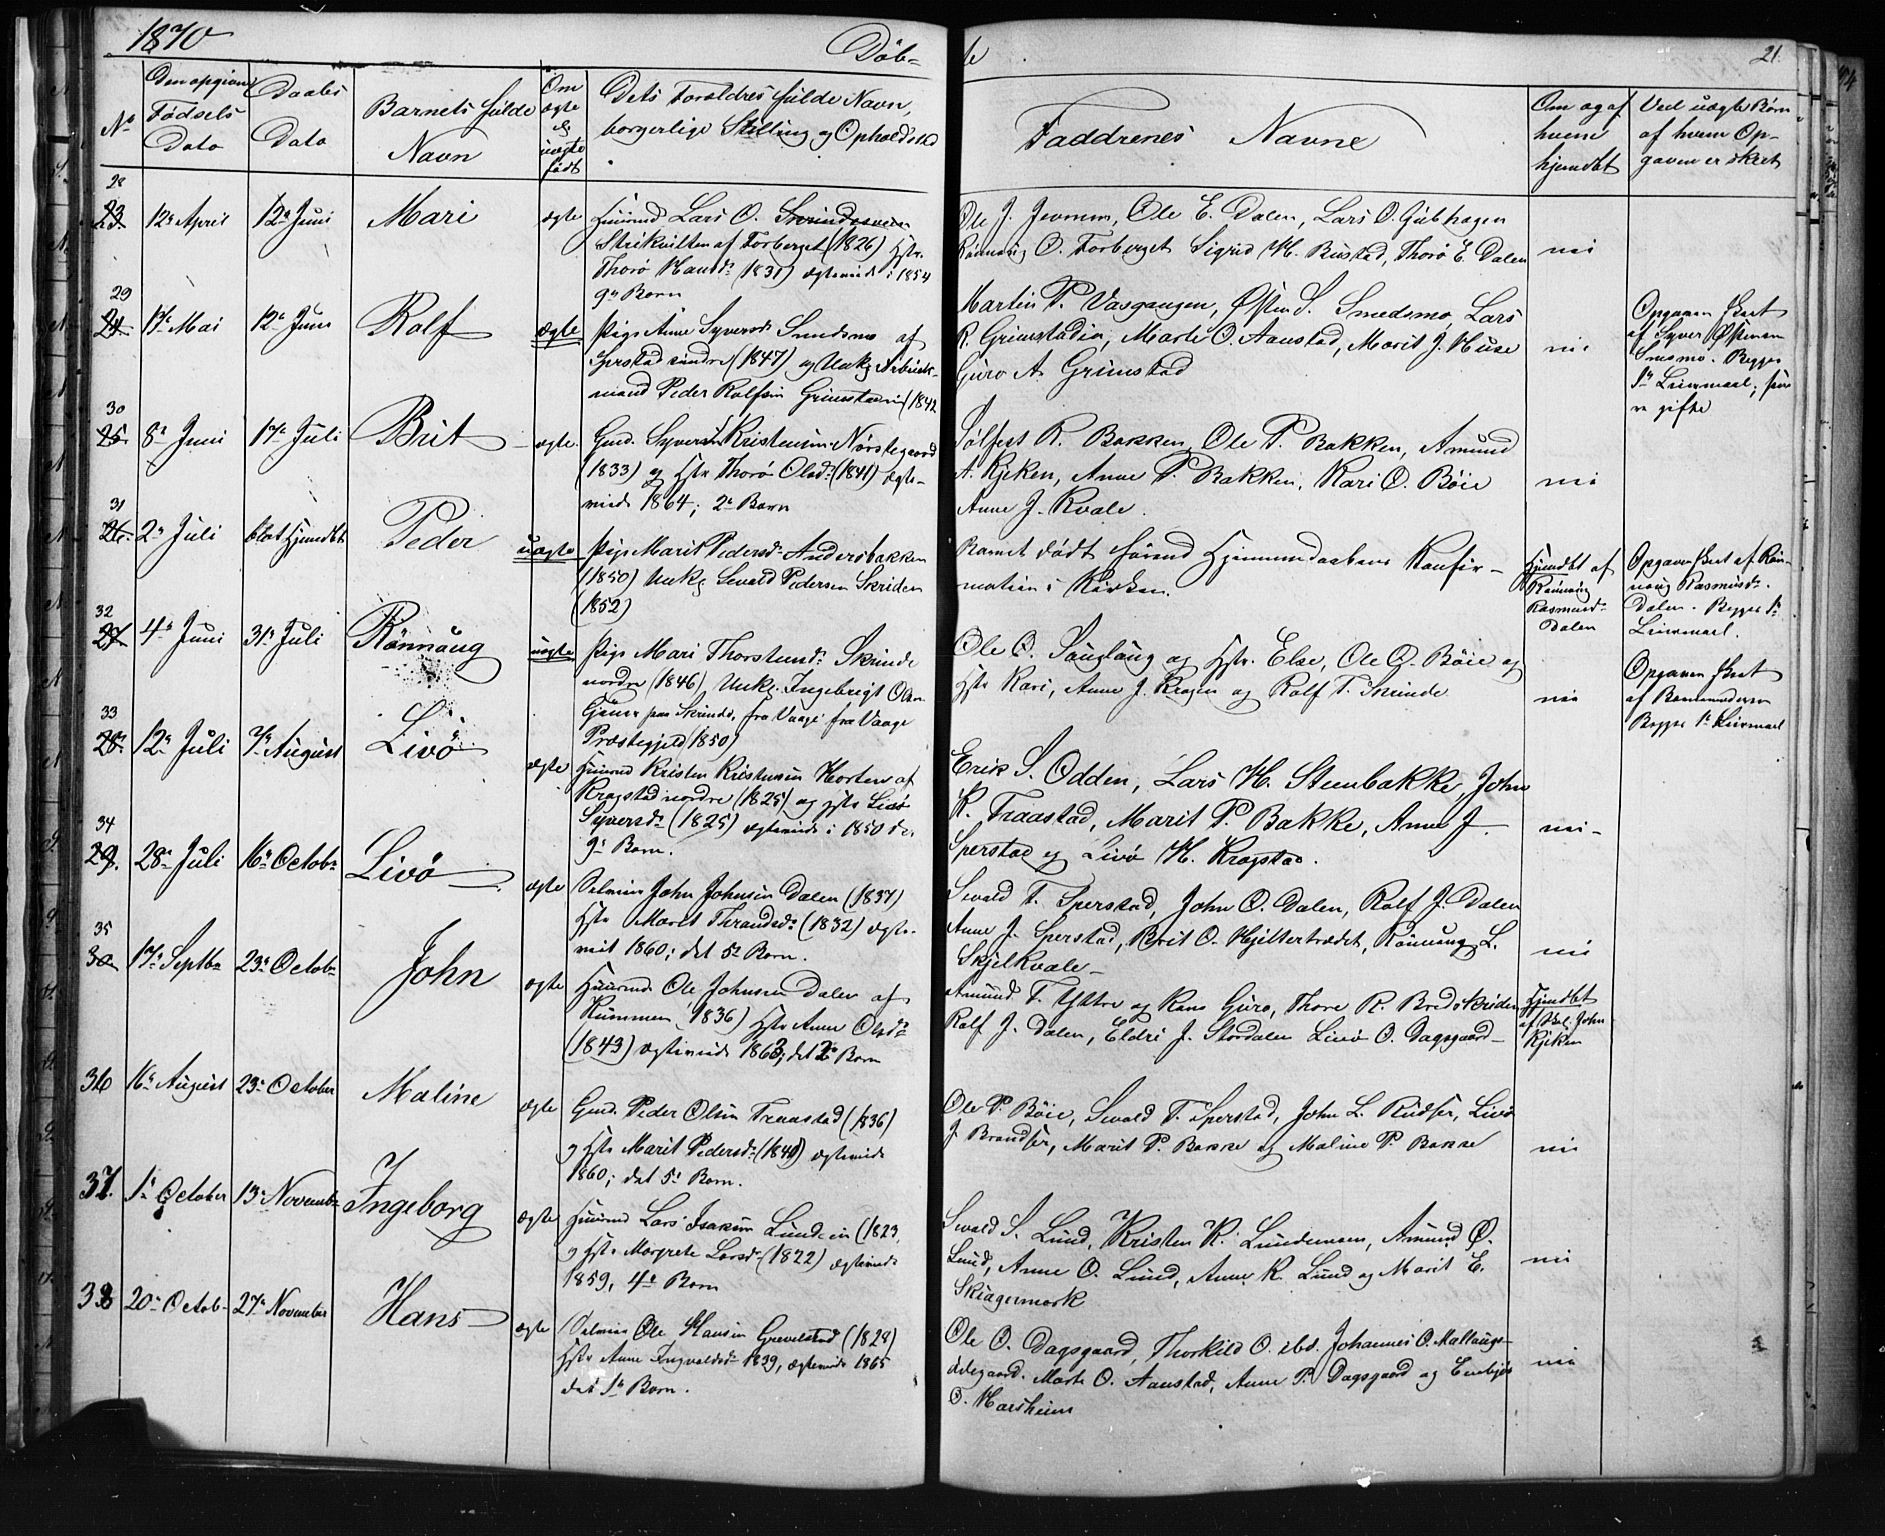 1870
Døb-
te
21.
No
Den opgivne
Fødsels
Dato
Daabs
Dato
Barnets fulde
Navn
Om
ægte
el.
uægte
født
Dets Forældres fulde Navn,
borgerlige Stilling og Opholdssted
Faddrenes Navne
Om og af
hvem
hjemdøbt
Ved uægte Børn
af hvem Op-
gaven er skeet
28
23. 12te April 12te Juni Mari ægte
Huusmd Lars O.
af Forberget (1826) Hstr.
Thorø Hansdr (1831) ægteviede i 1854
9de Barn
Ole J. Ole E. Dalen, Lars O. Gubhagen
Rønnoug O. Forberget Sigrid H. Bustad, Thorø E. Dalen
nei
29
24. 17de Mai 12te Juni Rolf ægte
Pige Anne Syversdr Smedsmo af
Sperstad søndre (1847) og Unkg Arbeids-
mand Peder Rolfsen Grimstadeie (1842
Martin P. Vasgangen, Østen S. Smedsmo, Lars
R. Grimstadeie, Marte O. Aanstad, Marit J. Huse
Guro A. Grimstad
nei
Opgaven skeet
af Syver Østensen
Smesmo. Begges
1ste Leiermaal;
gifte
30
25. 8de Juni 17de Juli Brit ægte
Gmd. Syver Kristensen Nørstegaard
(1833) og Hstr Thorø Olsdr (1841) ægte-
viede 1864; 2det Barn
Sølfest R. Bakken, Ole P. Bakken, Amund
A. Kjeken, Anne P. Bakken, Kari O. Bøie
Anne J. Kvale.
nei
31
26. 2den Juli blot hjemdøbt Peder uægte
Pige Marit Pedersdr Andersbakken
(1850) Unkg Sevald Pedersen Skriden
(1852)
Barnet dødt førend Hjemmedaabens Konfir-
mation i Kirken.
Hjemdøbt af
Rønnoug
Rasmusdr
Dalen
Opgaven skeet af Røn-
noug Rasmusdr
Dalen. Begges 1ste
Leiermaal.
32
27. 4de Juni 31te Juli Rønnaug uægte
Pige Mari Thorstensdr Skrinde
nordre (1846) Unkg. Ingebrigt Olsen
paa Skrinde, fra Vaage fra Vaage
Præstegjeld 1850)
Ole O. Sauglaug og Hstr. Else, Ole O. Bøie og
Hstr Kari, Anne J. Kragen og Rolf T. Skrinde
nei
Opgaven skeet
af Barnemoderen
Begges 1ste Leiermaal
33
28. 12te Juli 7de August Livø ægte
Huusmd Kristen Kristensen Horten af
Kragstad nordre (1825) og Hstr Livø
Syversdr (1825) ægteviede i 1850
9de Barn.
Erik S. Odden, Lars H. Steinbakke, John
K. Traastad, Marit P. Bakke, Anne J.
Sperstad og Livø H. Kragstad.
nei-
34
29. 28de Juli 16de Octobr Livø ægte
Selveier John Johnsen Dalen (1837)
Hstr Marit Thrandsdr (1832) ægte-
viet 1860; det 5te Barn.
Sevald T. Sperstad, John O. Dalen, Rolf J. Dalen
Anne J. Sperstad, Brit O. Hjeltertrædet, Rønnaug L.
Skjelkvale-
nei
35
30. 17de Septbr 23de Octobr John ægte
Huusmd. Ole Johnsen Dalen af
Rummen (1836) Hstr Anne Olsdr
(1843) ægteviede 1863, det 2det Barn
Amund T. Yttre og Kone Guro, Thore R. Bredeskriden
Rolf J. Dalen, Eldri J. Stordalen Livø O. Dagsgaard-
Hjemdøbt
af Skol. John
Kjeken
36 16de August 23de October Maline ægte
Gmd. Peder Olsen Traastad (1836)
og Hstr Marit Pedersdr (1840) ægteviede
1860; det 5te Barn.
Ole P. Bøie, Sevald T. Sperstad, John L. Rudser, Livø
J. Brandser, Marit P. Bakke og Maline P. Bakke
nei
37. 1ste October 13de Novembr Ingeborg ægte
Huusmd Lars Isaksen Lundeeie (1823,
og Hstr Margrete Larsdr (1822) ægteviede
1859, 4de Barn
Sevald S. Lund, Kristen K. Lundemoen, Amund O.
Lund, Anne O. Lund, Anne K. Lund og Marit E.
Skjagermork
nei
38 20de Octob- 27de November Hans ægte
Selveier Ole Hansen Grevelstad (1828)
Hstr Anne Ingvaldsdr 1839, ægteviede 1865
det 1ste Barn.
Ole O. Dagsgaard, Thorkild O. ibd. Johannes O. Mallaugs-
ødegaard, Marte O. Aanstad, Anne P. Dagsgaard og Embjør
O. Marsheim
nei